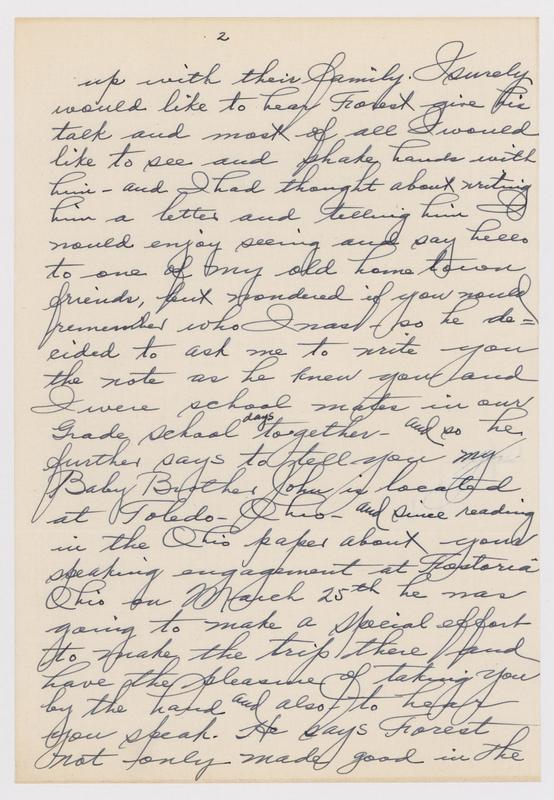 2
up with their family. I surely
would like to hear Forest give his
talk and most of all I would
like to see and shake hands with
him - and I had thought about writing
him a letter and telling him I
would enjoy seeing and say hello
to one of my old home town
friends, but wondered if you would
remember who I was - so he de=
cided to ask me to write you
the note as he knew you and
I were school mates in our
Grade school days together - and so he
further says to tell you my
Baby Brother John is located
at Toledo - Ohio - and since reading
in the Ohio paper about your
speaking engagement at Fostoria
Ohio on March 25th he was
going to make a special effort
to make the trip there and
have the pleasure of taking you
by the hand and also to hear
you speak. He says Forest
not only made good in the